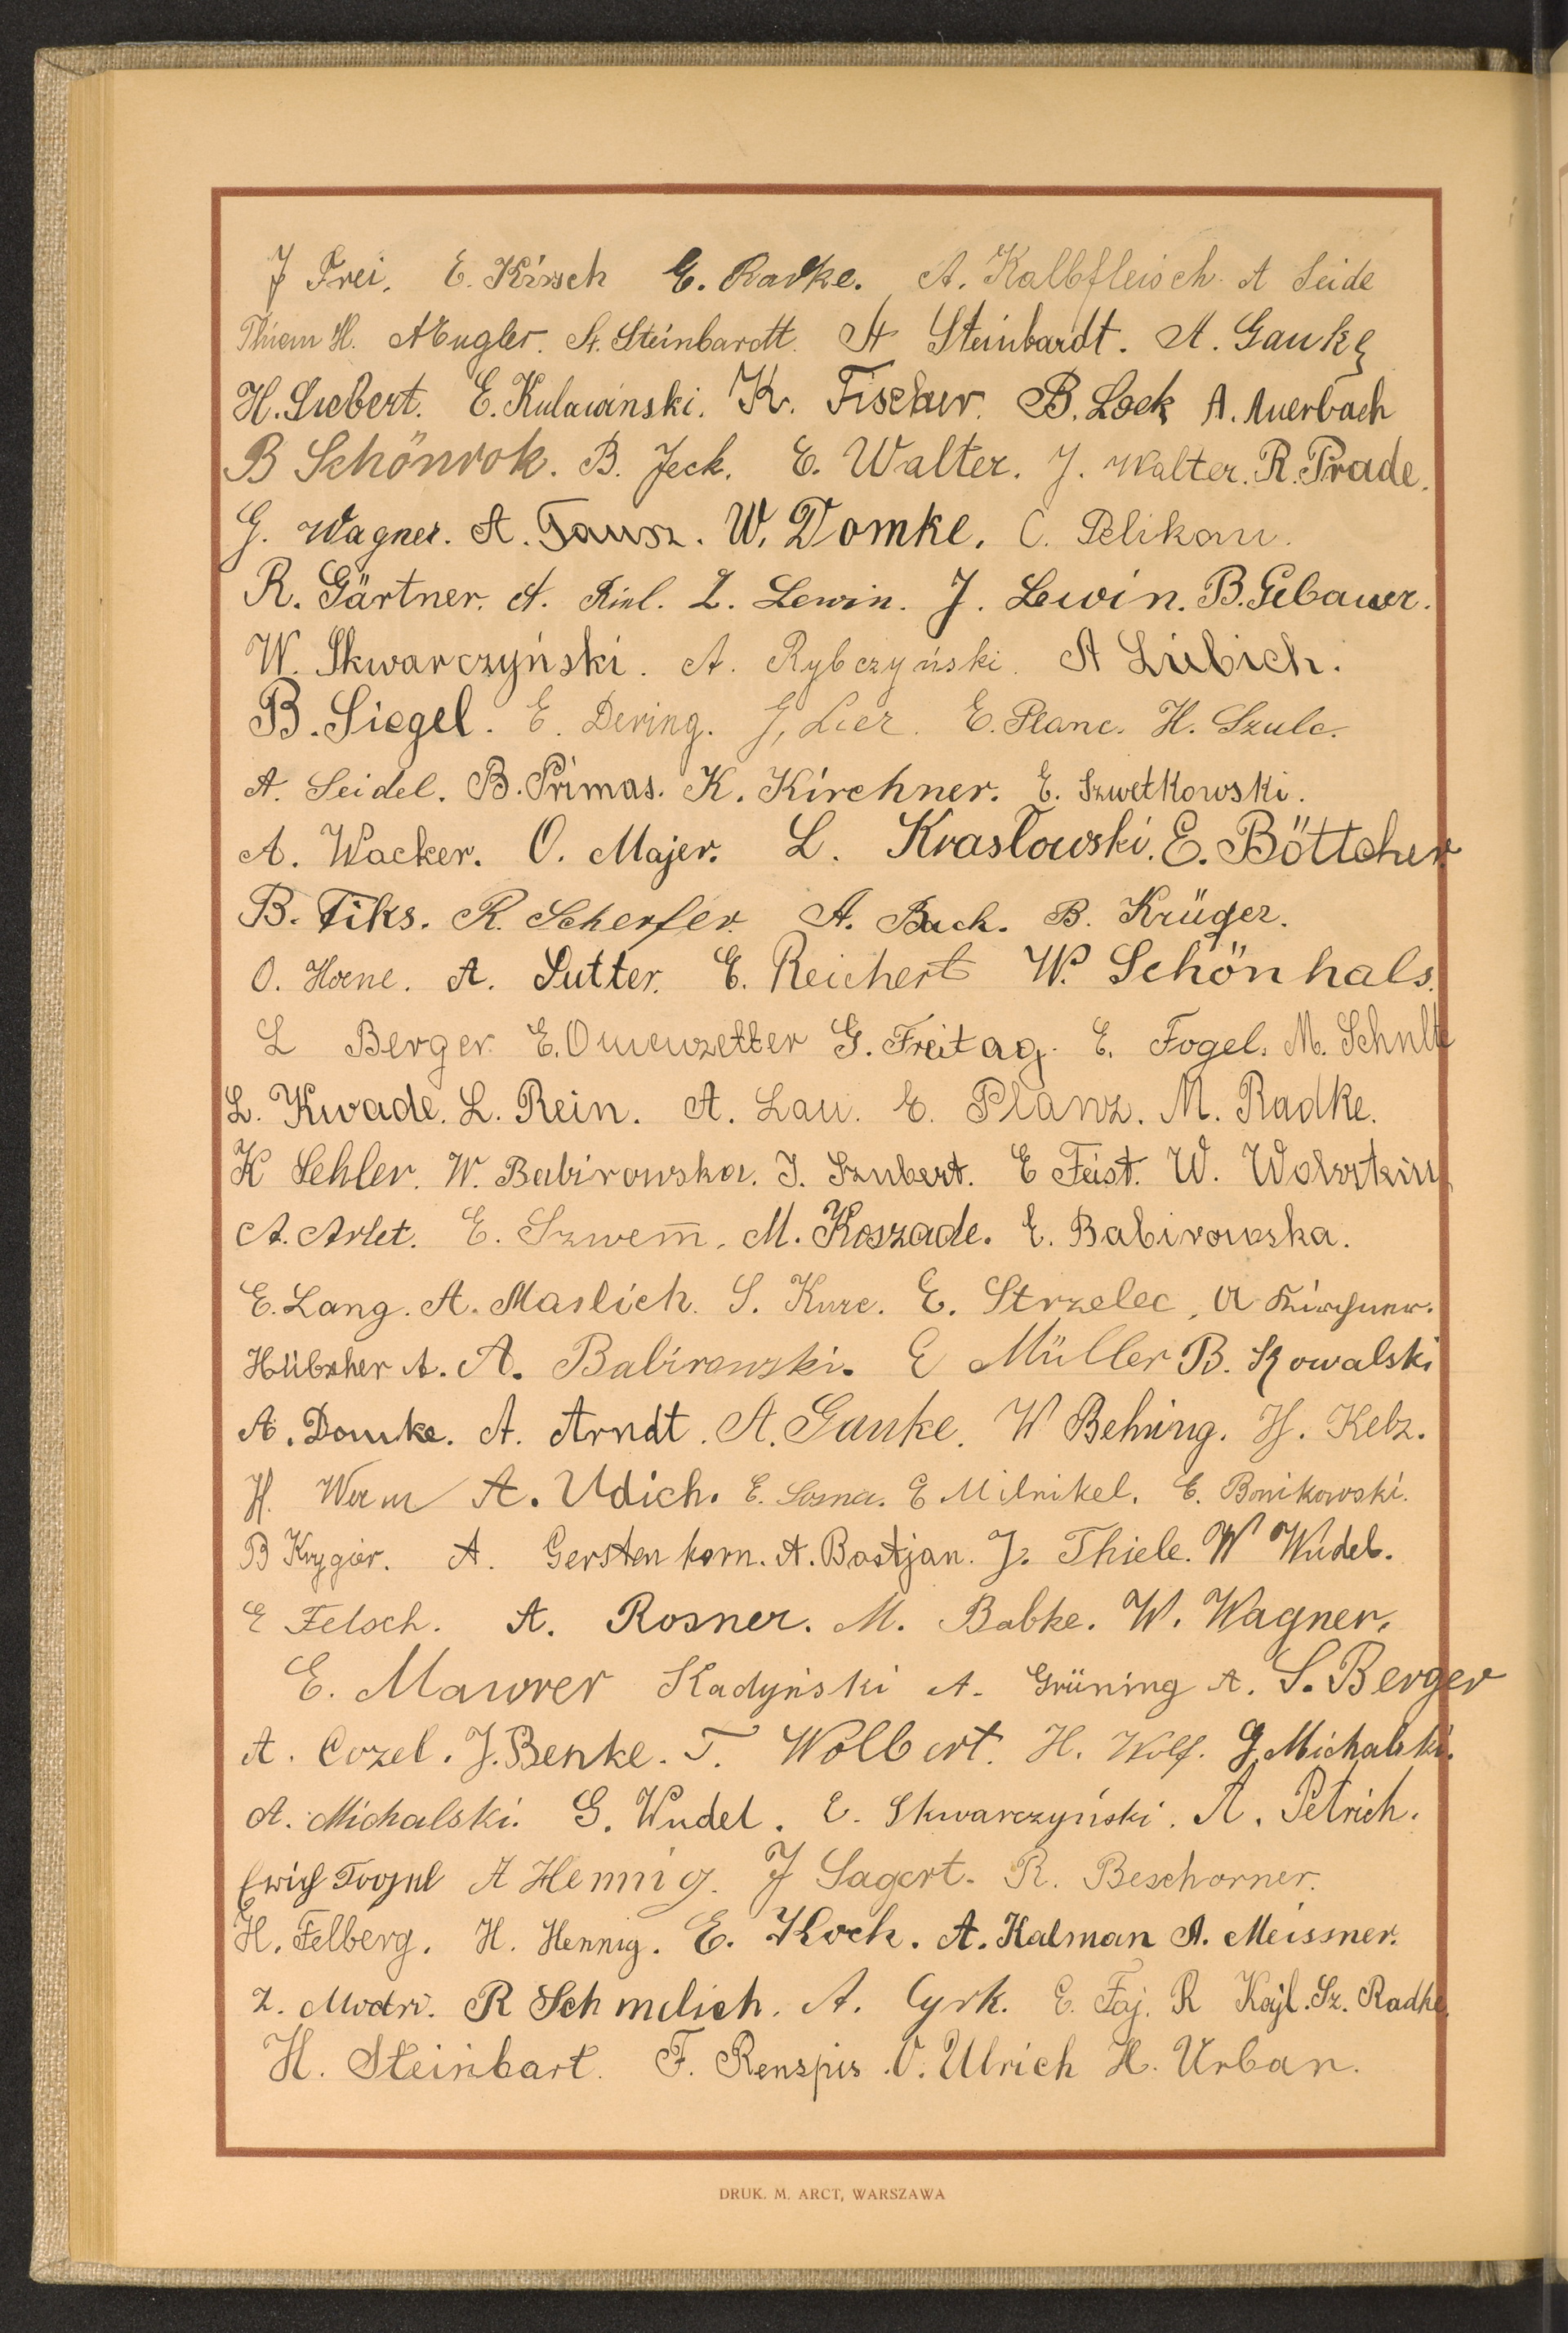 J Frei. E. Kirsch E. Radke. A. Kalbfleisch. A Seide
Thiem H. A Engler. A. Steinbardt. A Steinbardt. A. Gauke
H. Siebert. E. Kulawinski. K. Fischer. B. Lock A. Auerbach
B Schönrok. B. Jeck. E. Walter. J. Walter. R. Prade.
G. Wagner. A. Fausz. W. Domke. C. Pelikan.
R. Gärtner. A. L. Lewin. J. Lewin. B. Gebauer.
W. Skwarczyński. A. Rybczyński. A Liebich.
B. Siegel. E. Dering. J. Lier. E. Planc. H. Szulc.
A. Seidel. B. Primas. K. Kirchner. E. Szwetkowski.
A. Wacker. O. Majer. L. Krasłowski. E. Böttcher
B. Fiks. R. Scherfer. A. Bach. B. Krüger.
O. Hoene. A. Sutter. E. Reichert W. Schönhals.
L Berger. E. G. Freitag. E. Fogel. M. Schulte
L. Kwade. L. Rein. A. Lau. E. Planz. M. Radke.
K Sehler. W. Babirowska. J. Szubert. E Feist. W.
A. Arlet. E. Szwem̅. M. Koszade. E. Babirowska.
E. Lang. A. Maslich. S. Kurc. E. Strzelec, A Kirchner.
Hübscher A. A. Babirowski. E Müller B. Kowalski
A. Domke. A. Arndt. A. Gauke. W Behring. H. Kelz.
H. A. Udich. E. Sosna. E Milnikel. E. Bonikowski.
B Krygier. A. Gerstenkorn. A. Bastjan. J. Thiele. W Wudel.
E Felsch. A. Rosner. M. Babke. W. Wagner.
E. Maurer Kadyński A. Grüning A. S. Berger
A. Cozel. J. Benke. T. Wolbert. H. Wolf. G. Michalski.
A. Michalski. G. Wudel. E. Skwarczyński. A. Petrich.
Erich A Hennig. J Sagert. R. Beschorner.
H. Felberg. H. Hennig. E. Koch. A. Kalman A. Meissner.
Z. Modri. R Schmelich. A. Cyrk. E. Faj. R Kajl. Sz. Radke
H. Steinbart. F. Renspis. O. Ulrich H. Urban.
DRUK. M. ARCT, WARSZAWA